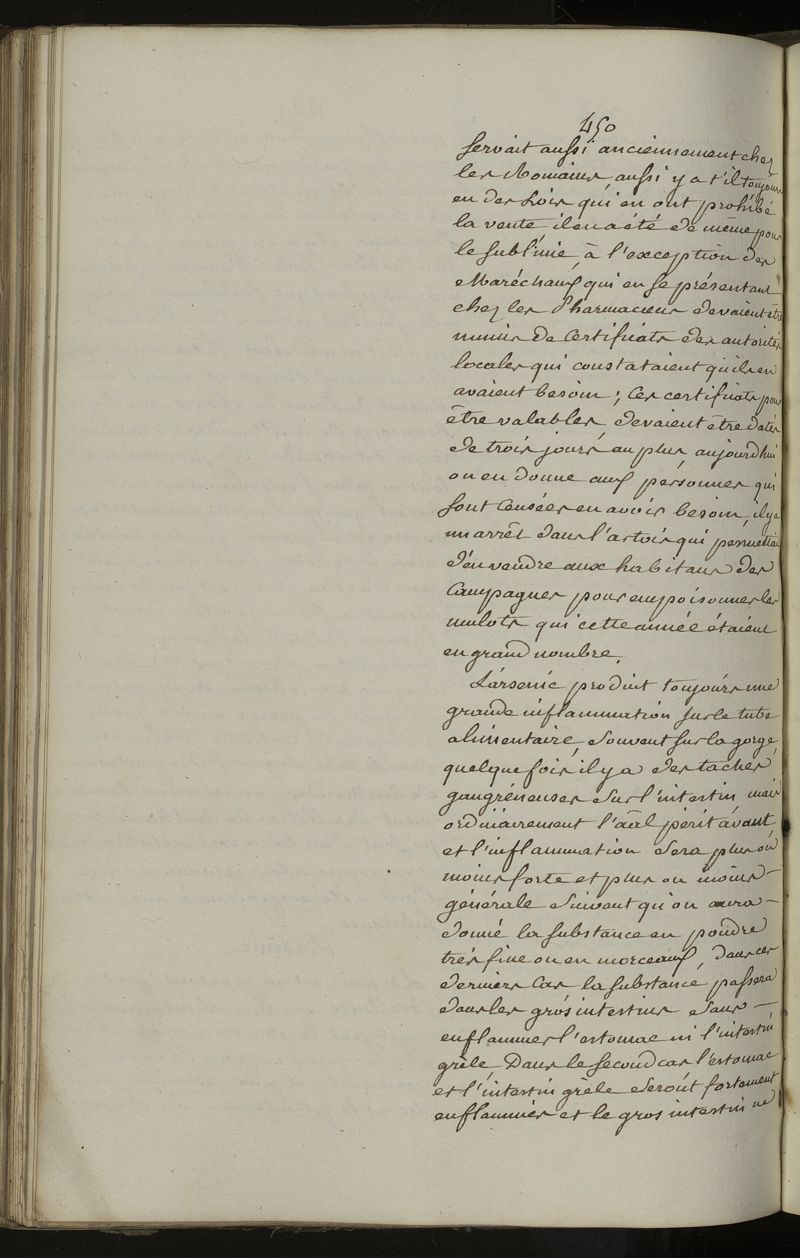 450
servait aussi anciennement chez
les Romains, aussi y a t'il toujours
eu des Lois qui en ont prohibé
la vente, il en a été de même pour
le sublimé, à l'exception des
Maréchaux qui en se présentant
chez les Pharmaciens devaient être
munis de Certificats des autorités
locales qui constataient qu'ils en
avaient besoin; Ces certificats pour
être valables, devaient être datés
de trois jours au plus, aujourd'hui
on en donne aux personnes qui
sont Censées en avoir besoin, il y a
un arrêt dans l'artois qui permettait
d'en vendre aux habitans des
Campagnes pour empoisonner les
mulots qui cette année étaient
en grand nombre.
L'arsenic produit toujours une
grande inflammation sur le tube
alimentaire, souvent sur la gorge,
quelque fois il y a des taches
gangréneuses sur l'intestin, mais
ordinairement l'aâl périt avant,
et l'inflammation sera plus ou
moins forte et plus ou moins
générale suivant qu'on aura
donné la substance en poudre
très fine ou en morceaux, dans ces
derniers Cas la substance passera
dans les gros intestins sans
enflammer l'estomac ni l'intestin
grêle, Dans le second cas l'estomac
et l'intestin grêle seront fortement
enflammés et le gros intestin ne